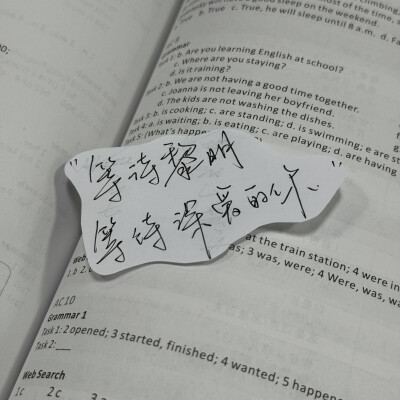 True c. True, he will sleep until 8 a.m.
Grammar
b. Are you learning English at school?
c. Where are you staying?
d. Is it raining?
b. We are not having a good time together.
c. Joanna is not leaving her boyfriend.
d. The kids are not washing the dishes.
b. is cooking; c. are standing; d. is swimming; e. are
a. is waiting; b. is eating; c. are playing; d. are having
"等待黎明
等待深爱的你."
at the train station; 4 were in
3 was, were; 4 Were, was,
AC 10
Grammar 1
Task 1: 2 opened; 3 started, finished; 4 wanted; 5 happene
Task 2:
Web Search
1 c 2 c